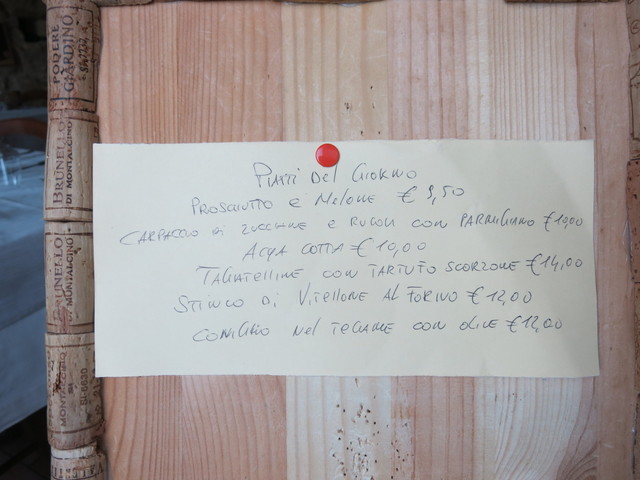 PIATTI DEL GIORNO
PROSCIUTTO E MELONE € 9,50
CARPACCIO DI ZUCCHINE E RUCOLA CON PARMIGIANO € 10,00
ACQA COTTA € 10,00
TAGLIATELLINE CON TARTUFO SCORZONE € 14,00
STINCO DI VITELLONE AL FORNO € 12,00
CONIGLIO NEL TEGAME CON OLIVE € 12,00
PODERE
GIARDINO
BRUNELLO
DI MONTALCINO
BRUNELLO
DI MONTALCINO
MONTALCINO